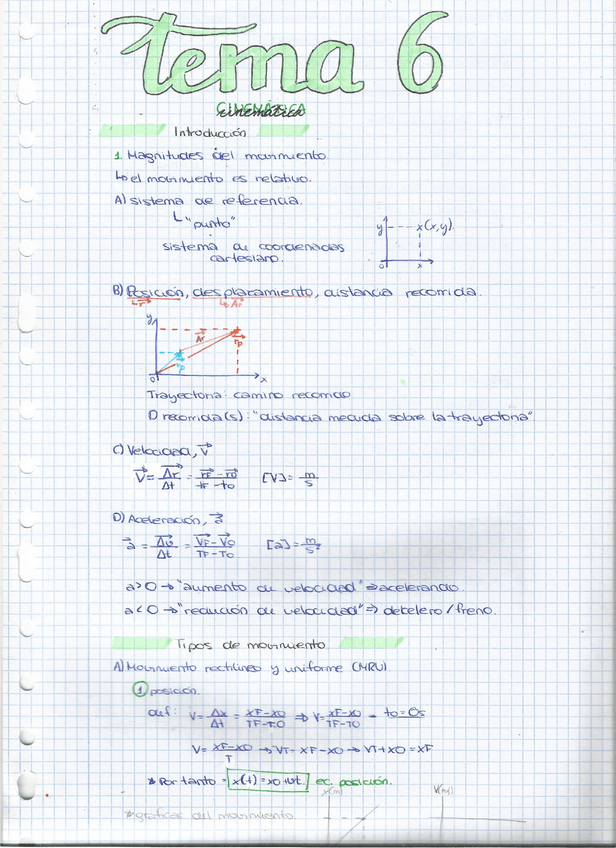 tema 6
cinemática
Introducción
1. Magnitudes del movimiento
↳ el movimiento es relativo.
A) sistema de referencia.
↳ "punto"
sistema de coordenadas
cartesiano.
y x(x,y).
0 x
B) Posición, desplazamiento, distancia recorrida.
↳ r⃗ ↳ Δr⃗
y
Δr⃗
r⃗p
r⃗p
0 x
Trayectoria: camino recorrido
D recorrida(s): "distancia medida sobre la trayectoria"
C) Velocidad, v⃗
v⃗ = Δr⃗/Δt = (r⃗F - r⃗0)/(tF - t0) [V] = m/s
D) Aceleración, a⃗
a⃗ = Δv⃗/Δt = (V⃗F - V⃗0)/(TF - T0) [a] = m/s²
a>0 → "aumento de velocidad" ⇒ acelerando.
a<0 → "reducción de velocidad" ⇒ decelero/freno.
Tipos de movimiento
A) Movimiento rectilíneo y uniforme (MRU)
① posición.
def: V = Δx/Δt = (XF-X0)/(TF-T0) ⇒ V = (XF-X0)/(TF-T0) = t0 = 0s
V = (XF-X0)/T → VT = XF-X0 → VT+X0 = XF
* Por tanto = x(t) = x0 + vt. ec. posición.
x(m)
* gráficas del movimiento.